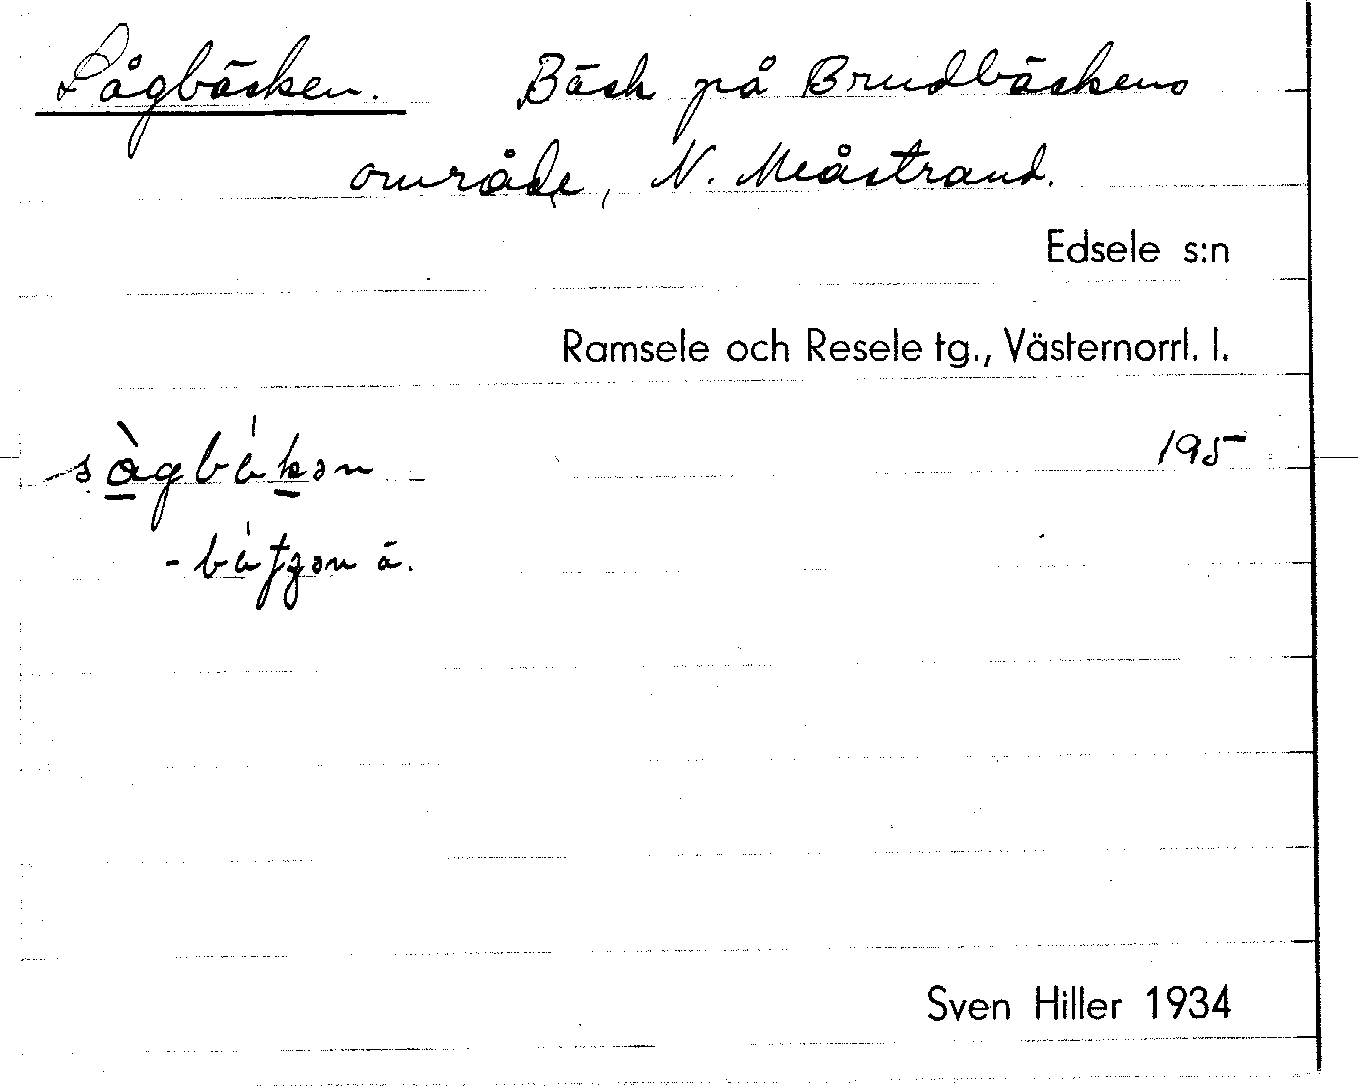 Sågbäcken. Bäck på Brudbäckens
område, N. Meåstrand.
Edsele s:n
Ramsele och Resele tg., Västernorrl. l.
195
ä.
Sven Hiller 1934